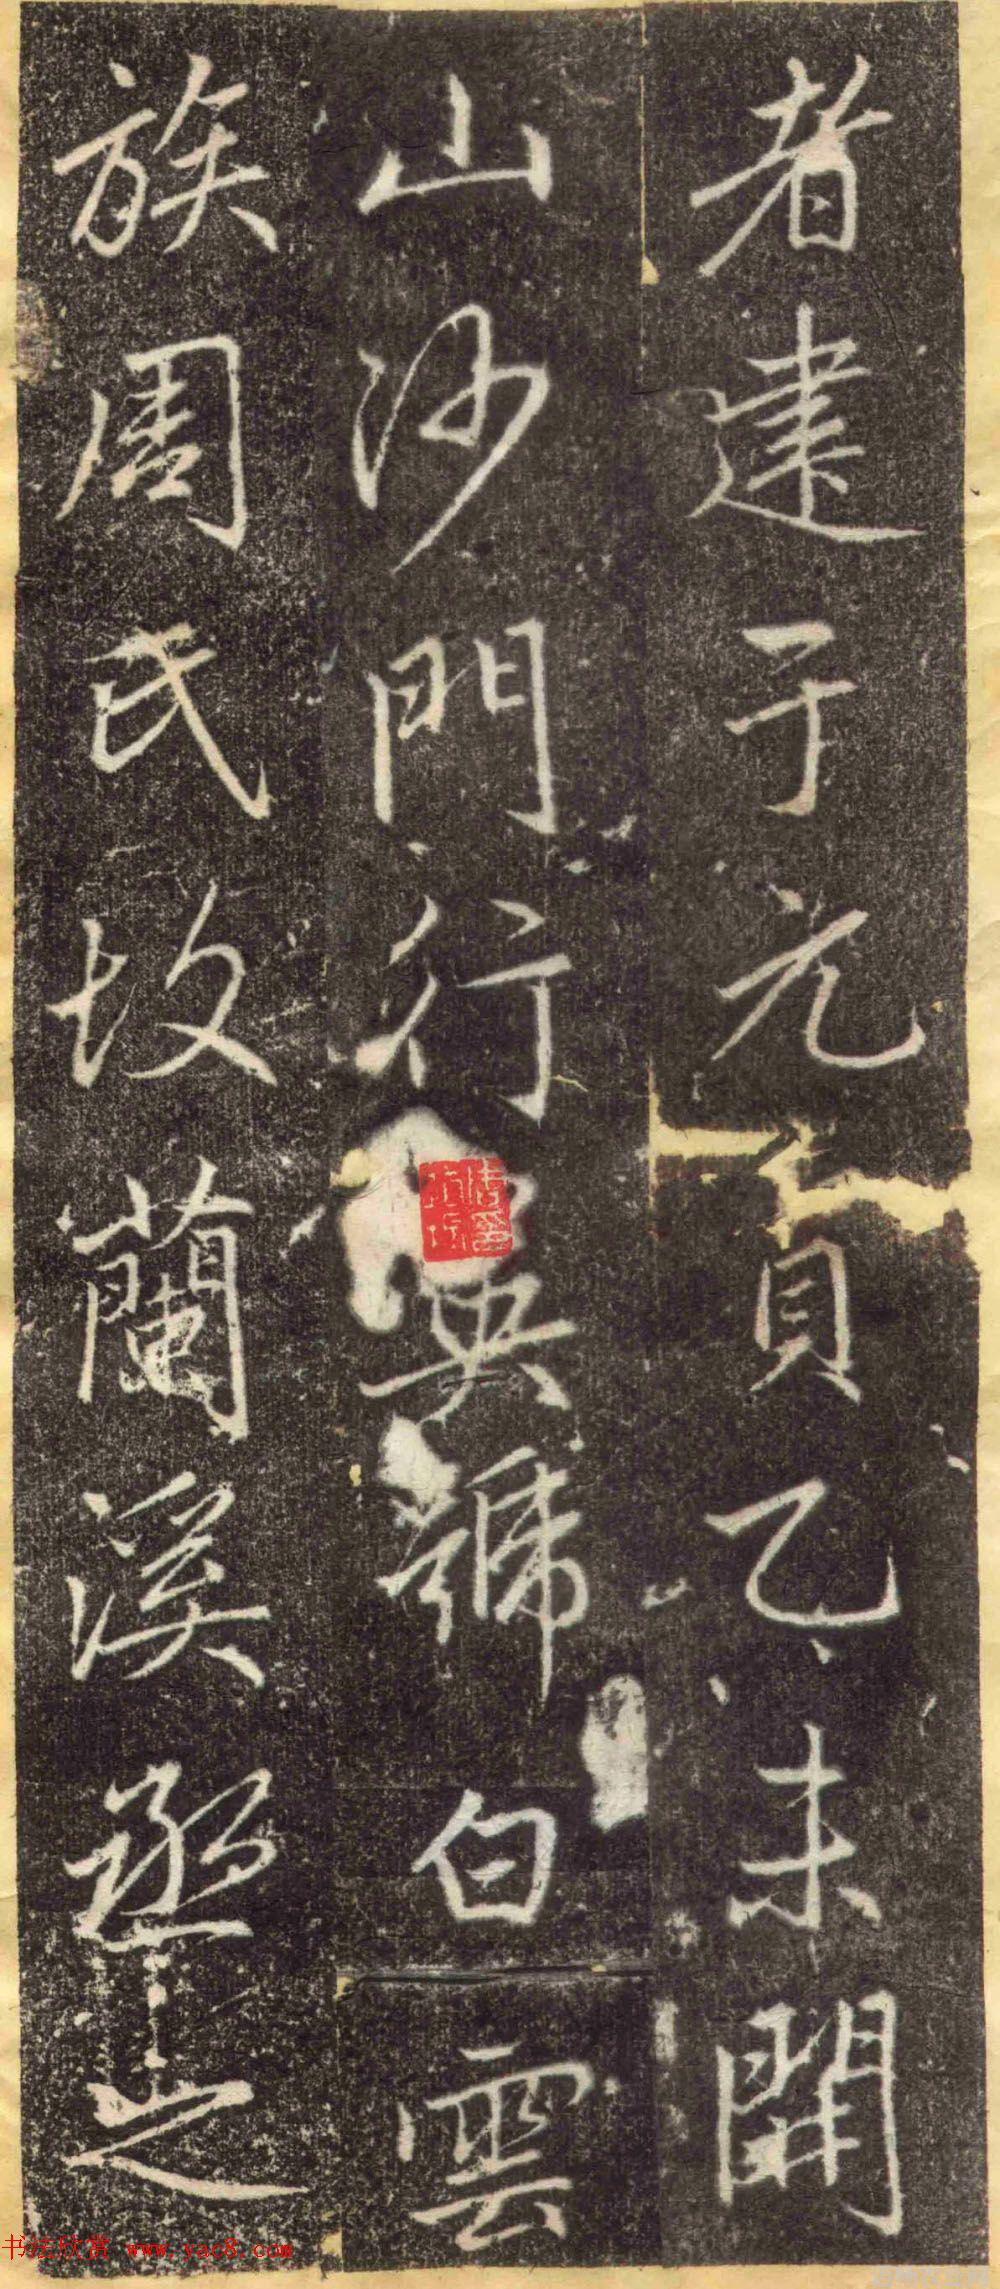 者建于元貞乙未開
山沙門行興號白雲
族周氏故蘭溪丞之
书法欣赏 www.yac8.com